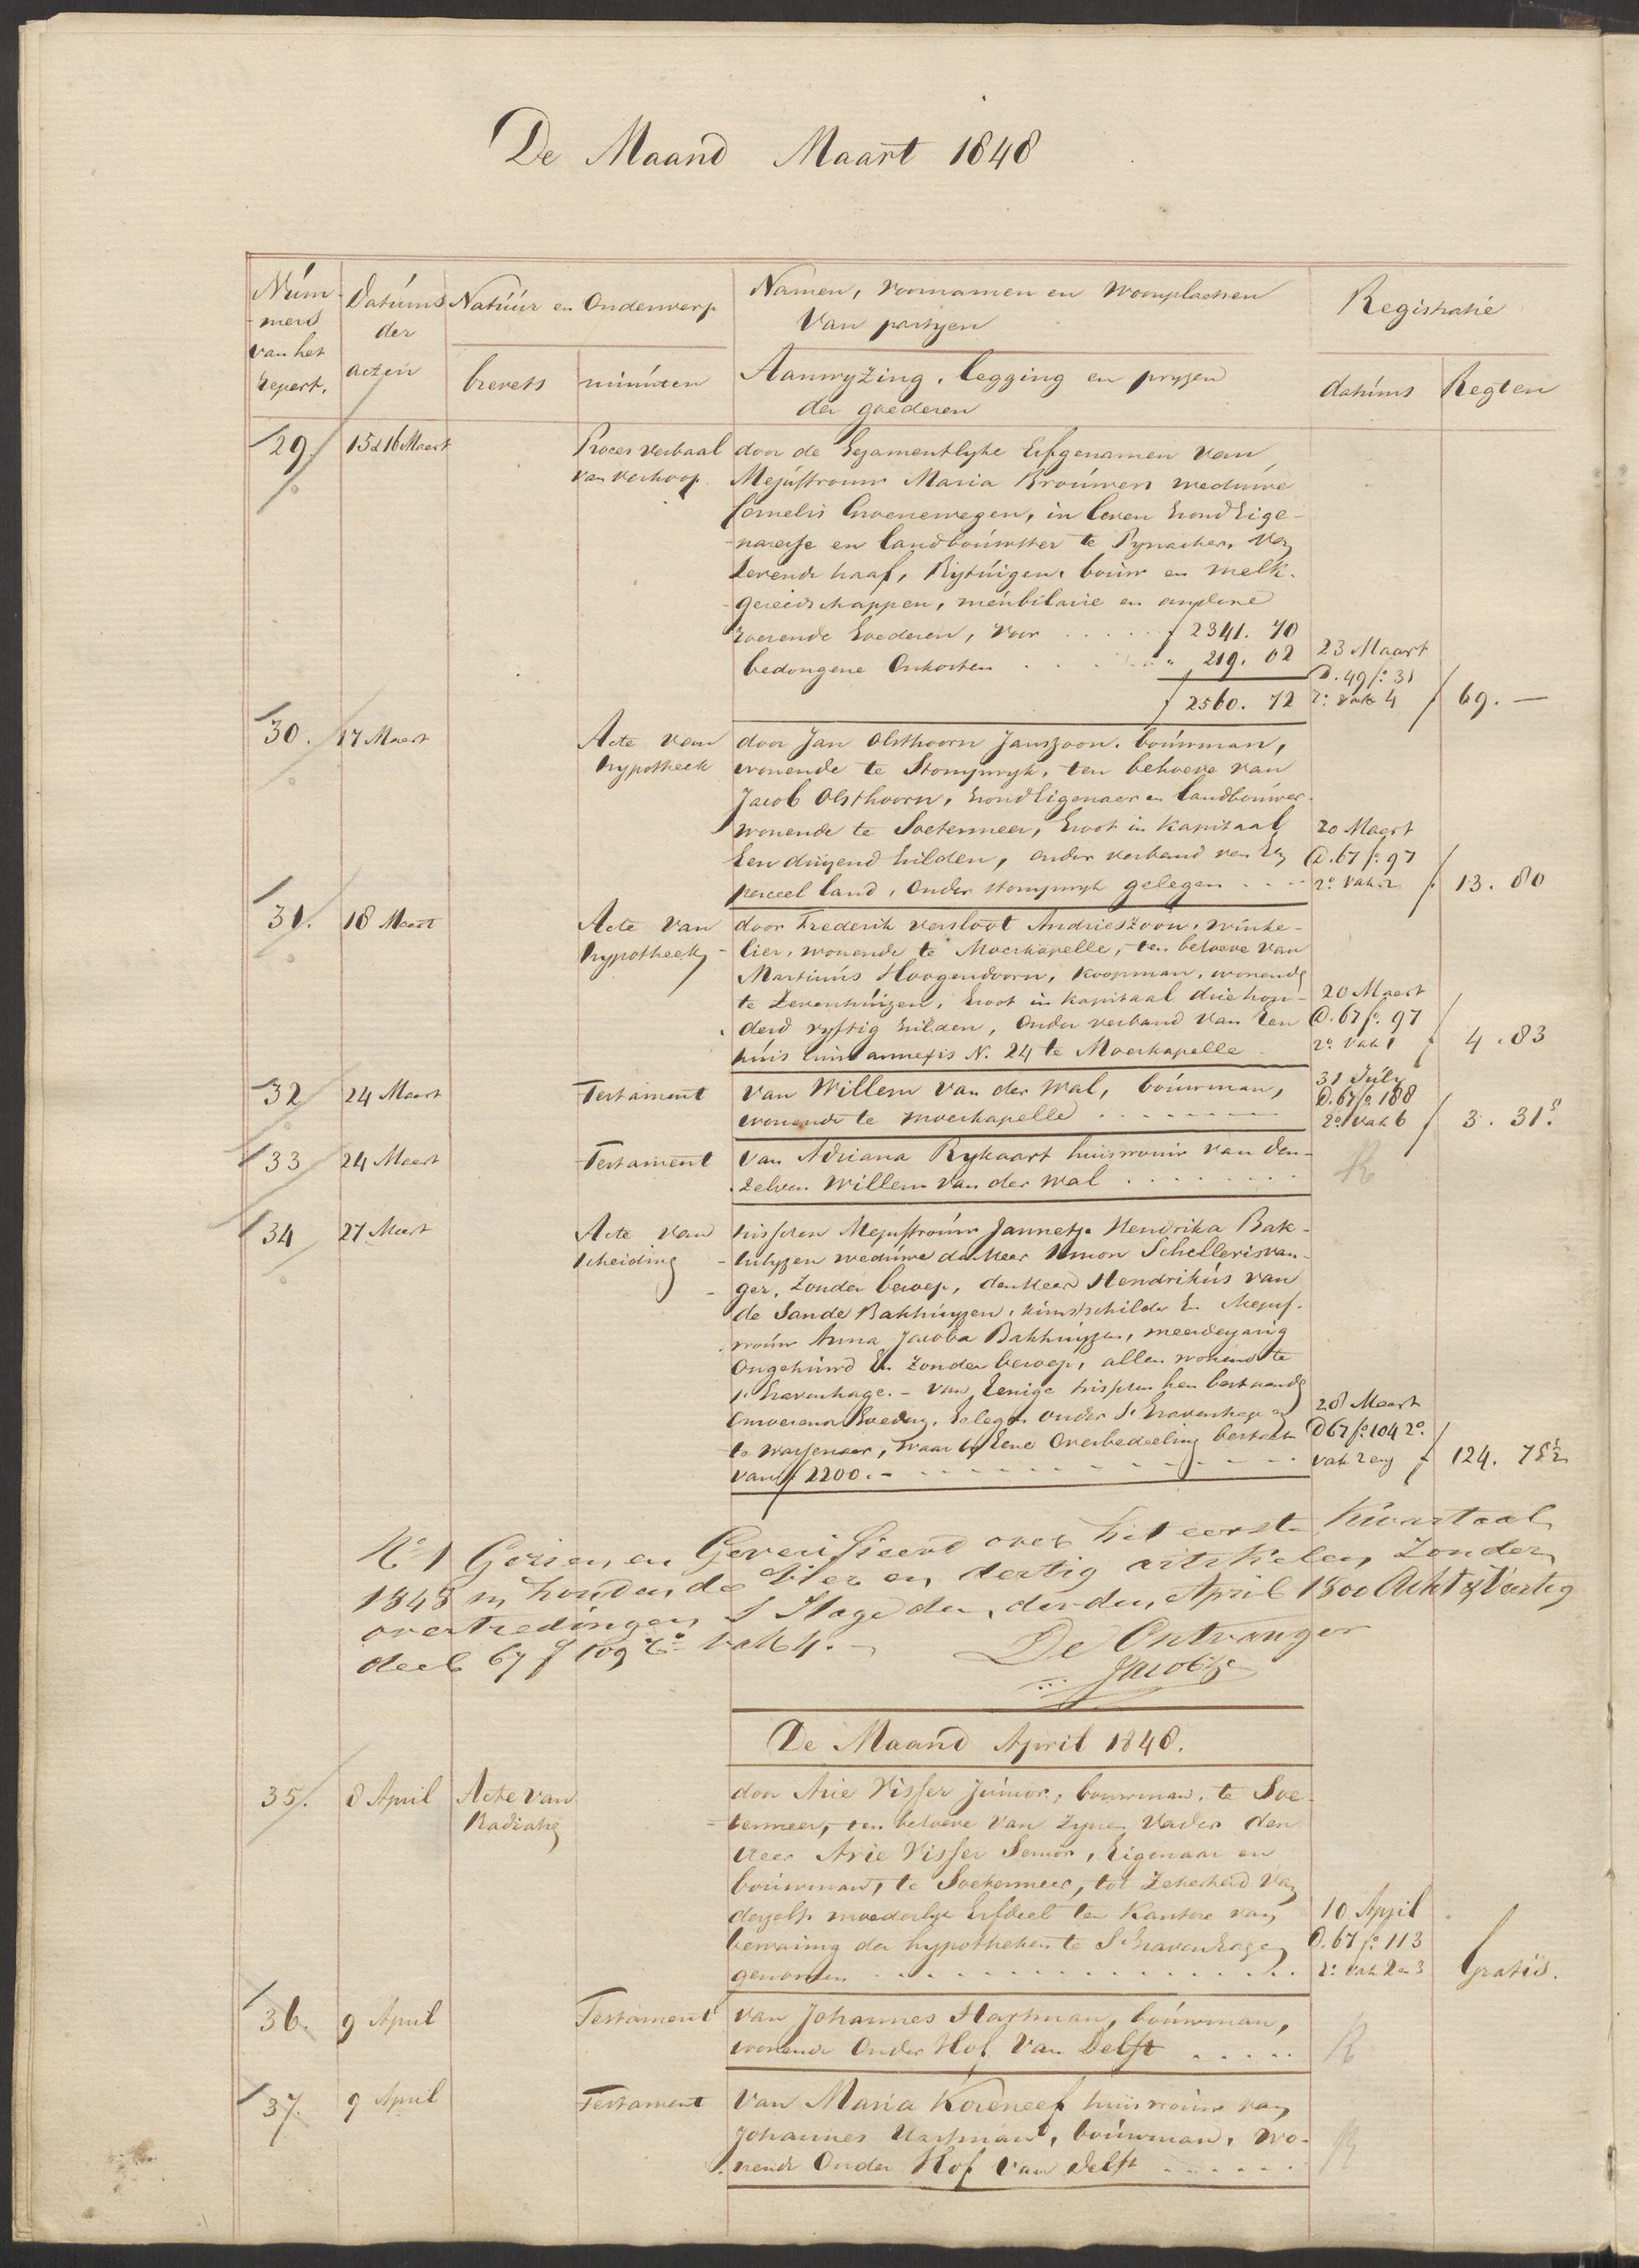 De Maand Maart 1848
Num-
mers
van het
repert.
Datums
der
acten
Natuur en Onderwerp
brevets
minuten
Namen, voornamen en woonplaatsen
Van partyen
Aanwyzing, legging en pryzen
der goederen
Registratie
datums
Regten
29.
15 & 16 Maart
Proces Verbaal
van Verkoop
door de Testamentlyke Erfgenamen van
Mejuffrouw Maria Brouwers weduwe
Cornelis Groenewegen, in leven Grond Eige-
naresse en landbouwster te Pynacker, van
levende haaf, Rytuigen, bouw en melk-
gereedschappen, meubilaire en andere
roerende Goederen, voor f 2341. 70
bedongene Onkosten " 219. 02
f 2560. 72
23 Maart
D. 49 fo. 31
Vo. vak 4
f 69. —
30.
17 Maart
Acte van
hypotheek
door Jan Olsthoorn Janszoon, bouwman,
wonende te Stompwyk, ten behoeve van
Jacob Olsthoorn, Grond Eigenaar en landbouwer
wonende te Soetermeer, Groot in Kapitaal
Een duizend Gulden, onder verband van Een
perceel land, Onder Stompwyk gelegen
20 Maart
D. 67 fo. 97
Vo. vak 2
f 13. 80
31.
18 Maart
Acte van
hypotheek
door Frederik Versloot Andrieszoon, winke-
lier, wonende te Moerkapelle, ten behoeve van
Martinus Hoogendoorn, Koopman, wonende
te Zevenhuizen, Groot in Kapitaal driehon-
derd vyftig Gulden, Onder verband van Een
huis cum annexis N. 24 te Moerkapelle
20 Maart
D. 67 fo. 97
Vo. vak 1
f 4. 83
32
24 Maart
Testament
van Willem van der Wal, bouwman,
wonende te Moerkapelle
31 July
D. 67 fo. 188
Vo. vak 6
f 3. 31 5
33
24 Maart
Testament
van Adriana Rykaart huisvrouw van den-
zelven Willem van der Wal
R
34
27 Maart
Acte van
scheiding
tusschen Mejuffrouw Jannetje Hendrika Bak-
huyzen weduwe de Heer Simon Schellerisvan-
ger, Zonder beroep, den Heer Hendrikus van
de Sande Bakhuyzen, kunstschilder En Mejuf-
vrouw Anna Jacoba Bakhuyzen, meerderjarig
Ongehuwd En Zonder beroep, allen wonende te
's Gravenhage. – van Eenige tusschen hen bestaande
Onroerende Goedren, Gelegen onder 's Gravenhage en
te Wassenaar, waar by Eene Overbedeeling bestaat
van f 2200. –
28 Maart
D 67 fo. 104 Vo.
vak 2 env
f 124. 75½
No 1 Gezien en Geverifieerd over het eerste Kwartaal
1848 in houdende Vier en dertig artikelen Zonder
overtredingen S Hage den derden April 1800 Acht & Veertig
deel 67 f 109 Vo vak 4. –
De Ontvanger
Jacobze
De Maand April 1848.
35.
8 April
Acte van
Radiatie
door Arie Visser Junior, bouwman, te Soe-
termeer, ten behoeve van Zynen Vader den
Heer Arie Visser Senior, Eigenaar en
bouwman, te Soetermeer, tot Zekerheid van
deszelfs moederlyk Erfdeel ten Kantore van
bewaring der hypotheken te S Gravenhage
genomen
10 April
D. 67 fo. 113
Vo. vak 2 en 3
Gratis.
36.
9 April
Testament
van Johannes Hartman, bouwman,
wonende Onder Hof van Delft
R
37.
9 April
Testament
van Maria Koreneef huisvrouw van
Johannes Hartman, bouwman, wo-
nende Onder Hof van Delft
R